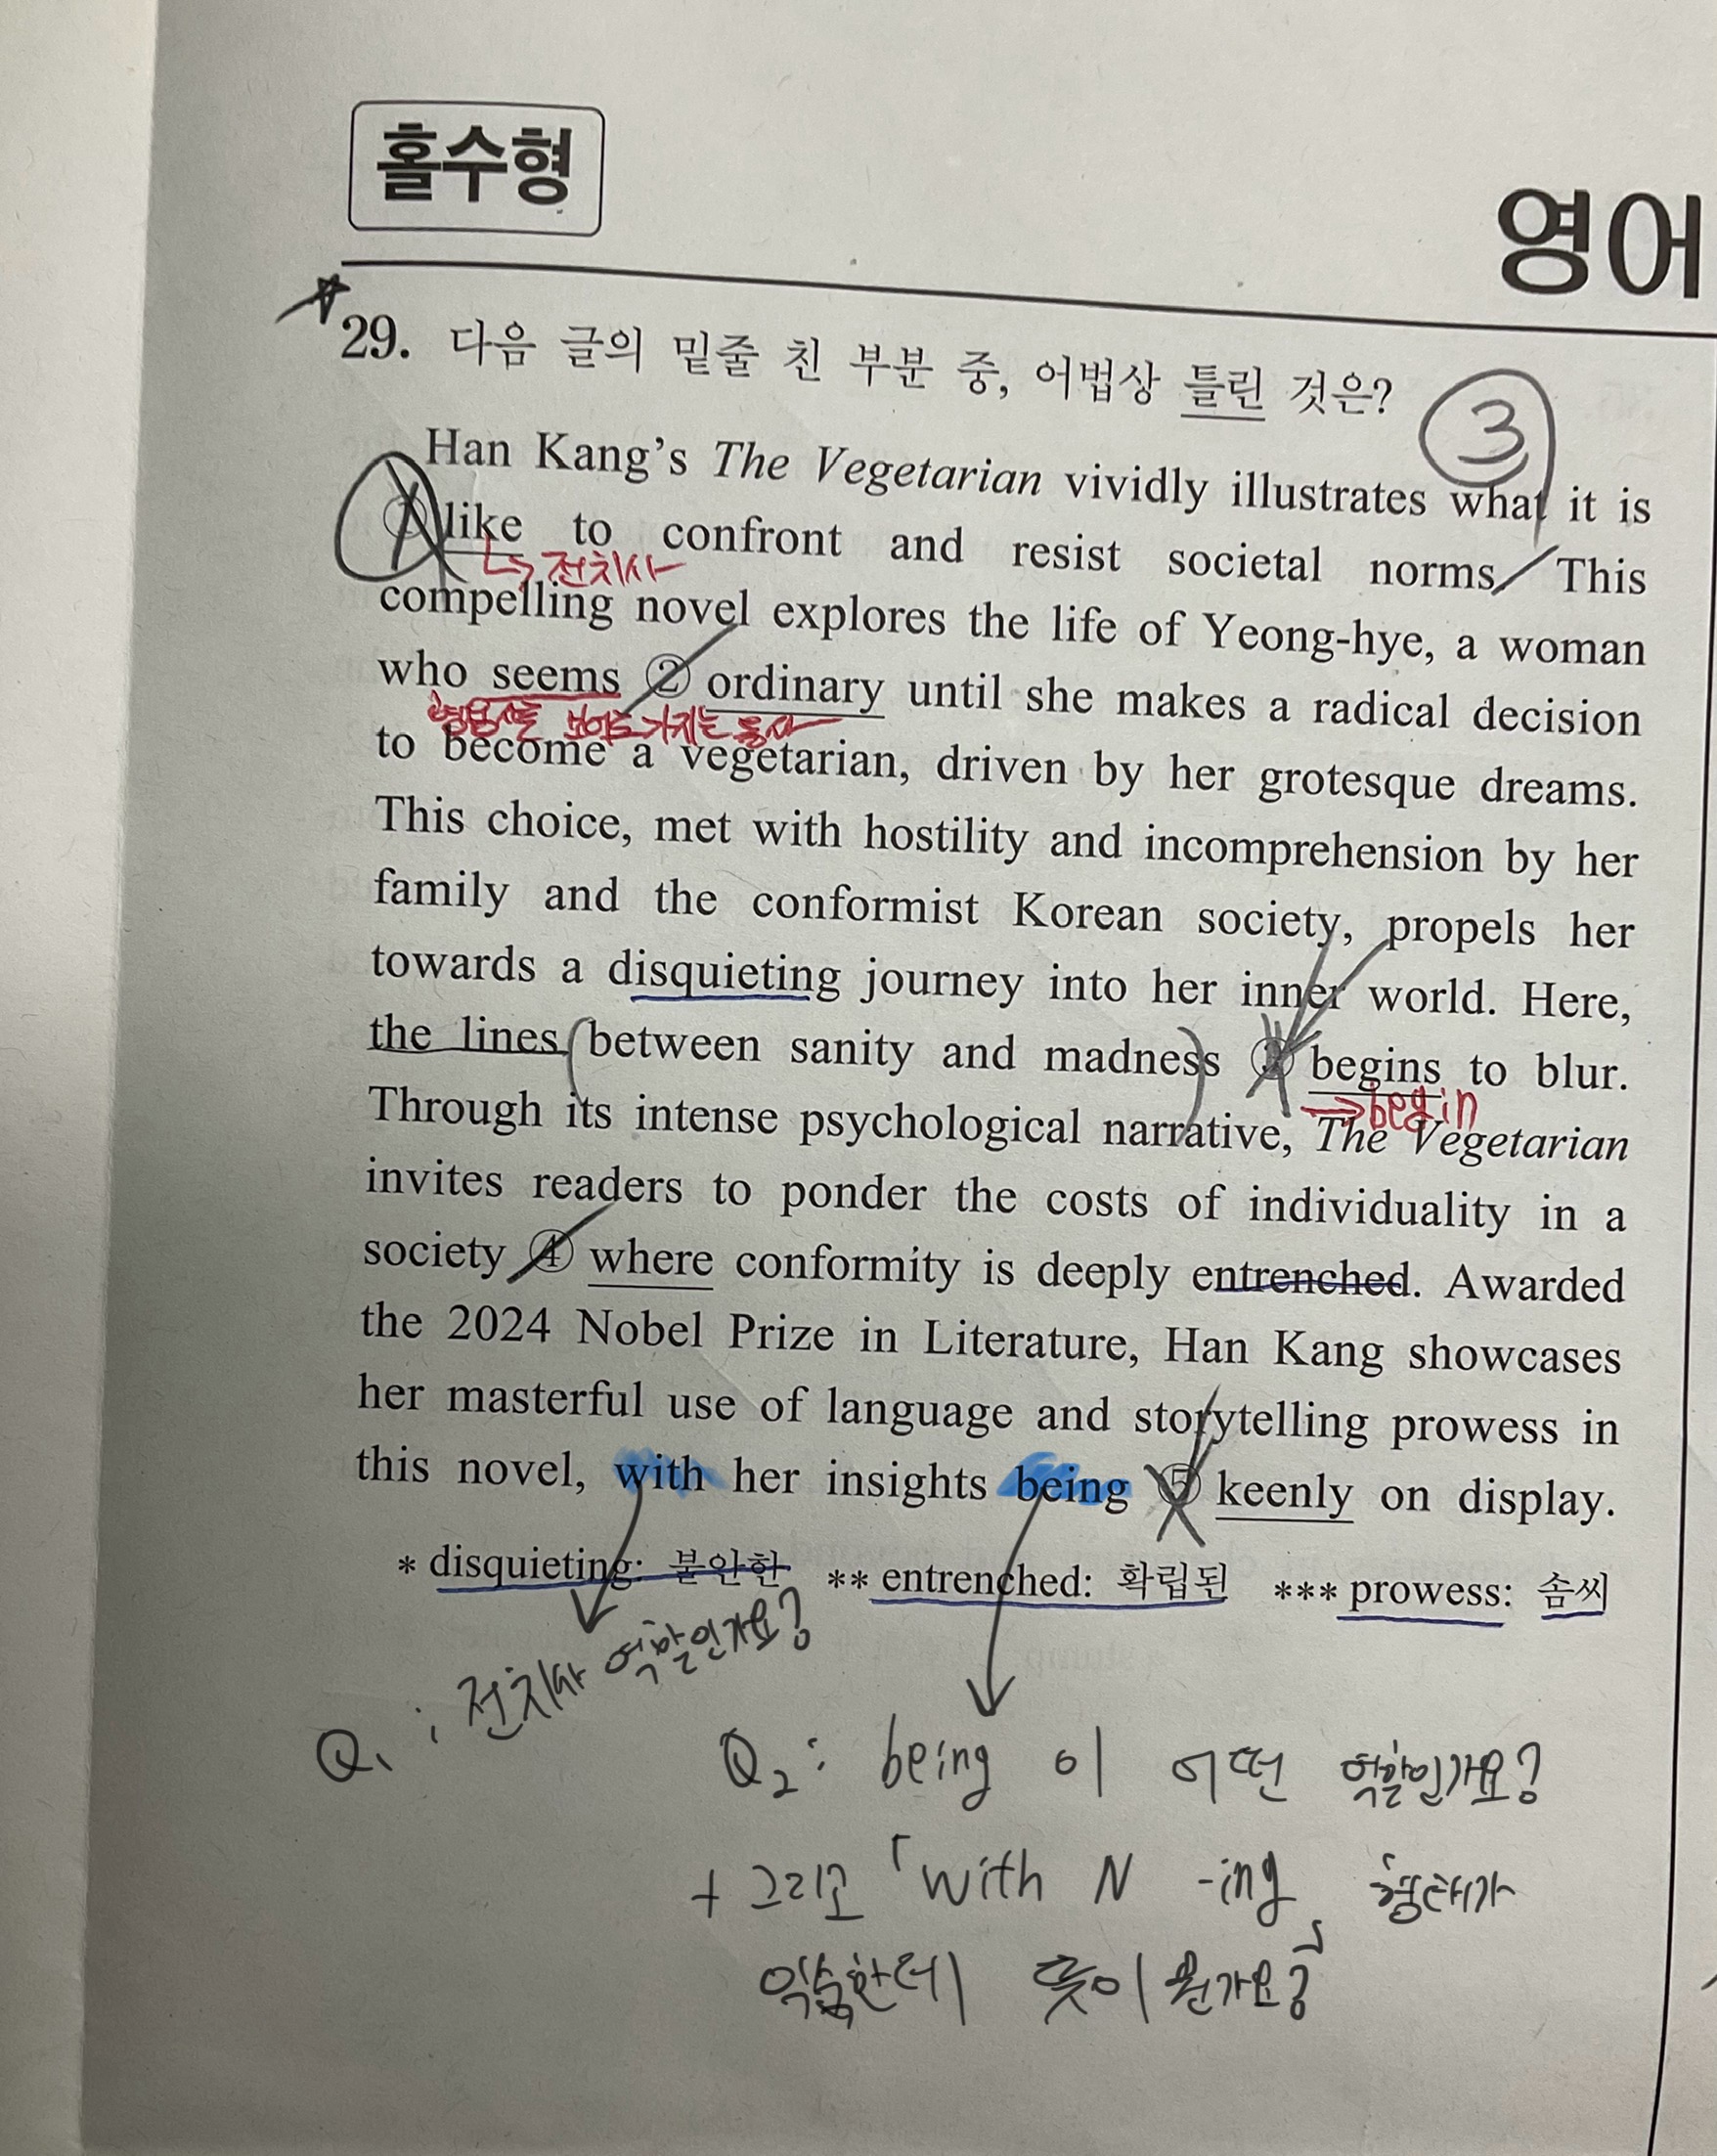 홀수형
영어
29. 다음 글의 밑줄 친 부분 중, 어법상 틀린 것은?
3
Han Kang's The Vegetarian vividly illustrates what it is
① like to confront and resist societal norms. This
→ 전치사
compelling novel explores the life of Yeong-hye, a woman
who seems ② ordinary until she makes a radical decision
형용사를 보어로 가지는 동사
to become a vegetarian, driven by her grotesque dreams.
This choice, met with hostility and incomprehension by her
family and the conformist Korean society, propels her
towards a disquieting journey into her inner world. Here,
the lines (between sanity and madness) ③ begins to blur.
→ begin
Through its intense psychological narrative, The Vegetarian
invites readers to ponder the costs of individuality in a
society ④ where conformity is deeply entrenched. Awarded
the 2024 Nobel Prize in Literature, Han Kang showcases
her masterful use of language and storytelling prowess in
this novel, with her insights being ⑤ keenly on display.
* disquieting: 불안한 ** entrenched: 확립된 *** prowess: 솜씨
Q1 : 전치사 역할인가요?
Q2 : being 이 어떤 역할인가요?
+ 그리고 「with N -ing」 형태가
익숙한데 뜻이 뭔가요?